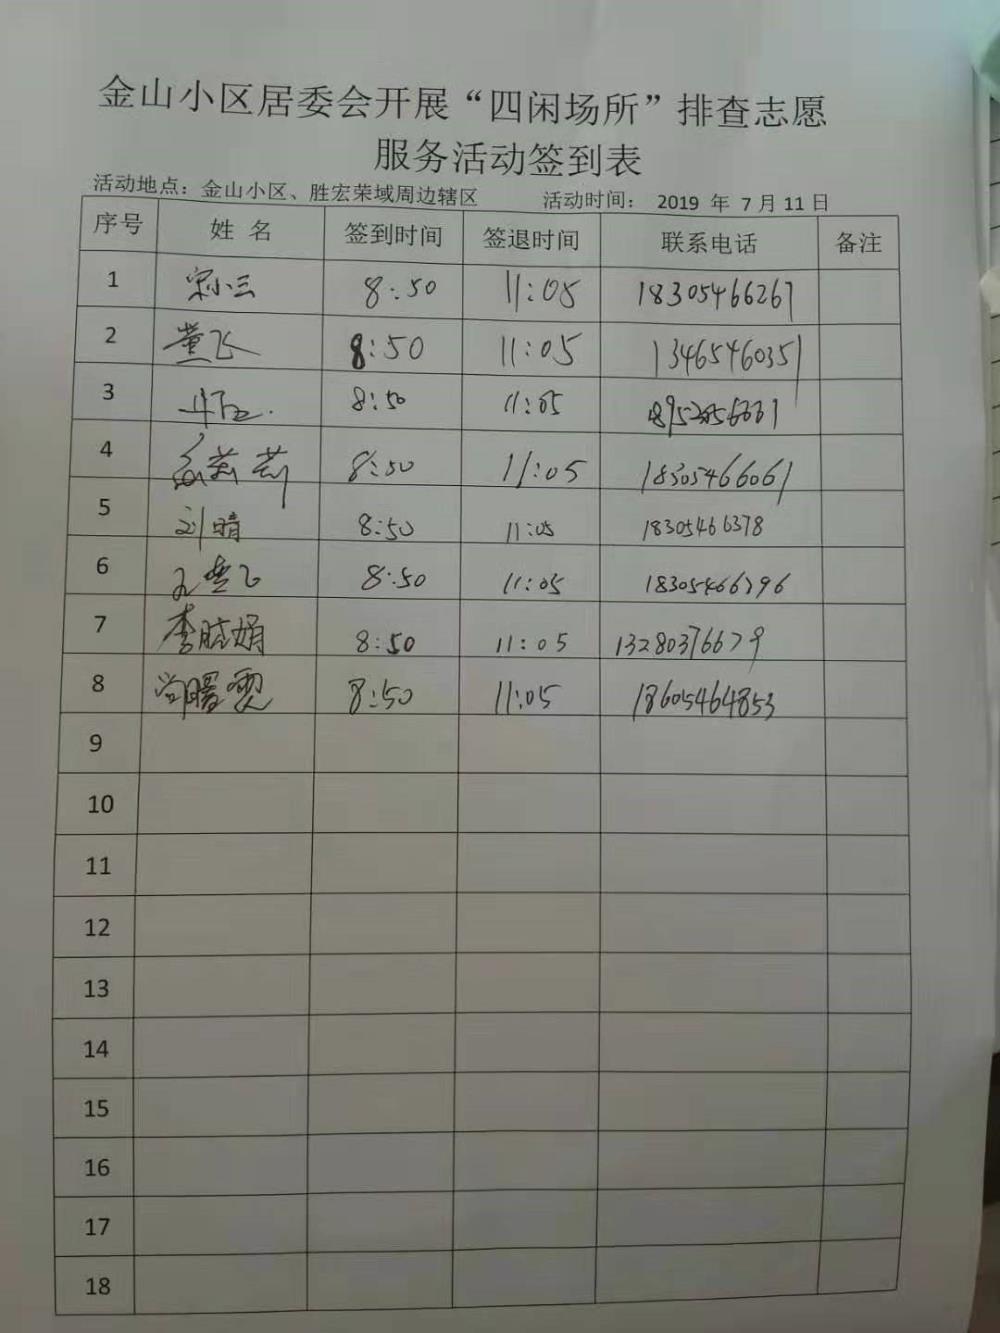 金山小区居委会开展“四闲场所”排查志愿
服务活动签到表
活动地点：金山小区、胜宏荣域周边辖区 活动时间： 2019 年 7 月 11 日
序号 姓 名 签到时间 签退时间 联系电话 备注
1 宋小三 8:50 11:05 18305466267
2 董飞 8:50 11:05 13465460351
3 8:50 11:05
4 莉莉 8:50 11:05 18305466061
5 刘晴 8:50 11:05 18305466378
6 8:50 11:05 18305466796
7 李晓娟 8:50 11:05 13280376679
8 8:50 11:05 18605464853
9
10
11
12
13
14
15
16
17
18